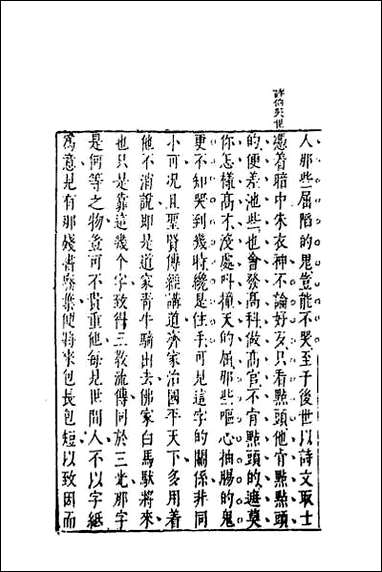 人那些屈陷的鬼豈能不哭至于後世以詩文取士
憑着暗中朱衣神不論好歹只看點頭他肯點點頭
的便差池些也會發高科做高官不肯點頭的遮莫
你怎樣高才沒處叫撞天的屈那些嘔心抽腸的鬼
更不知哭到幾時纔是住手可見這字的關係非同
小可况且聖賢傳經講道齊家治國平天下多用着
他不消說卽是道家靑牛騎出去佛家白馬馱將來
也只是靠這幾个字致得三教流傳同於三光那字
是何等之物豈可不貴重他每見世間人不以字紙
爲意見有那殘書廢葉便將來包長包短以致因而